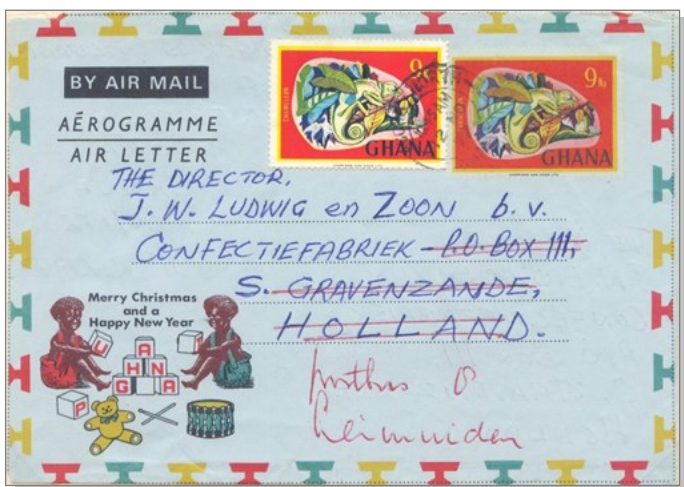 BY AIR MAIL
AÉROGRAMME
AIR LETTER
9 NP
GHANA
CHAMELEON
9 NP
GHANA
THE DIRECTOR,
J. W. LUDWIG en ZOON b. v.
CONFECTIEFABRIEK - P.O. BOX 111,
S. GRAVENZANDE,
HOLLAND.
Merry Christmas
and a
Happy New Year
U
A
T
G H N A
P
postbus 8
Leimuiden